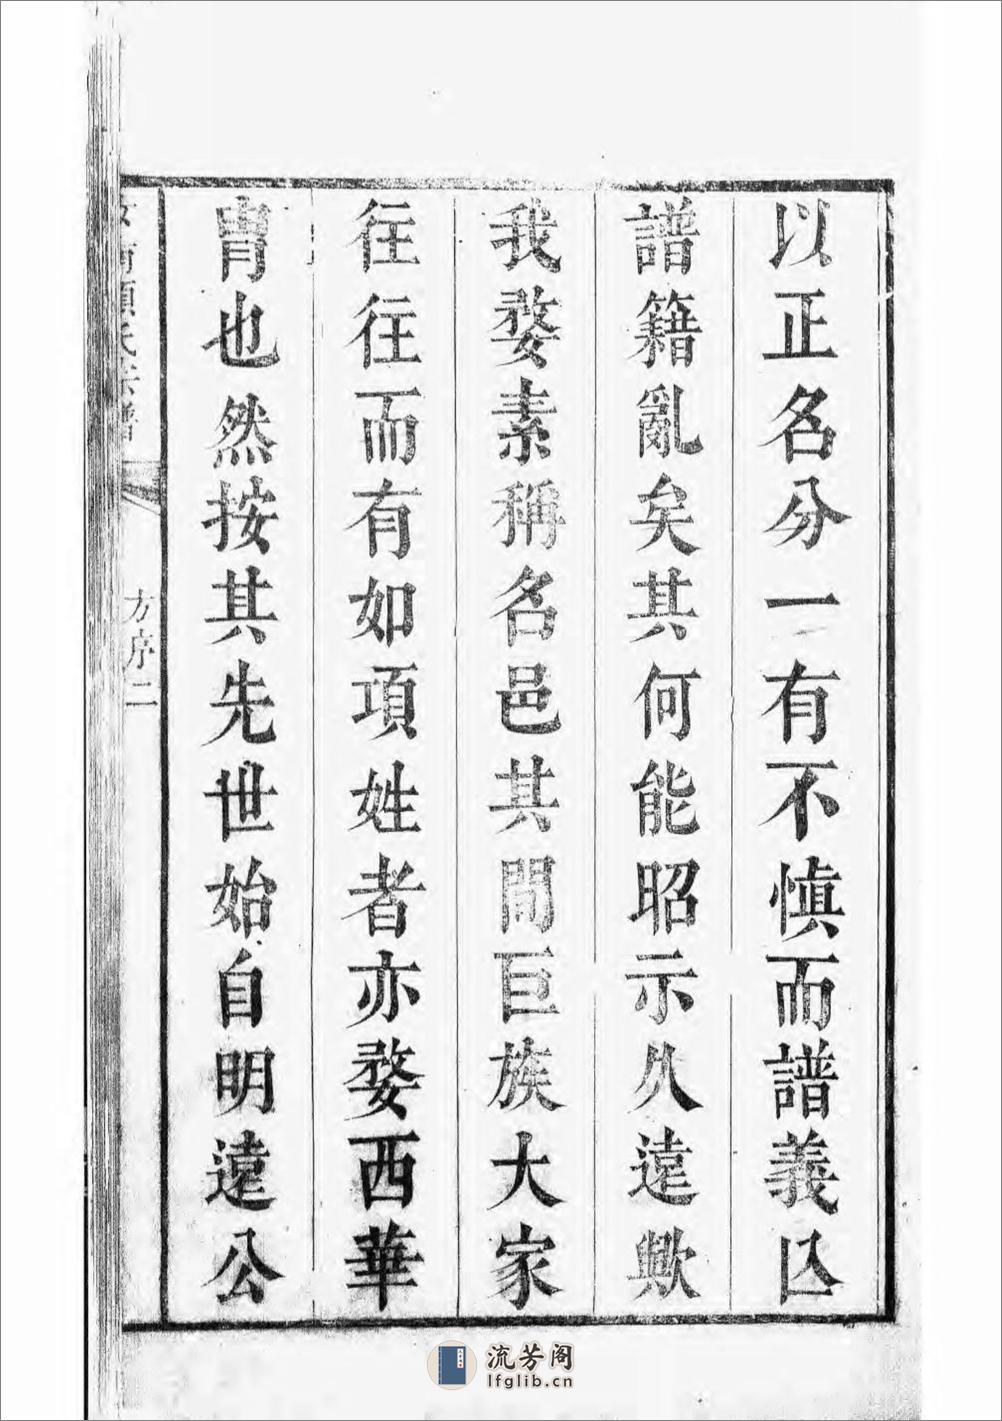 以正名分一有不慎而譜義亾
譜籍亂矣其何能昭示久遠歟
我婺素稱名邑其間巨族大家
往往而有如項姓者亦婺西華
胄也然按其先世始自明遠公
項氏宗譜
方序二
流芳阁
lfglib.cn